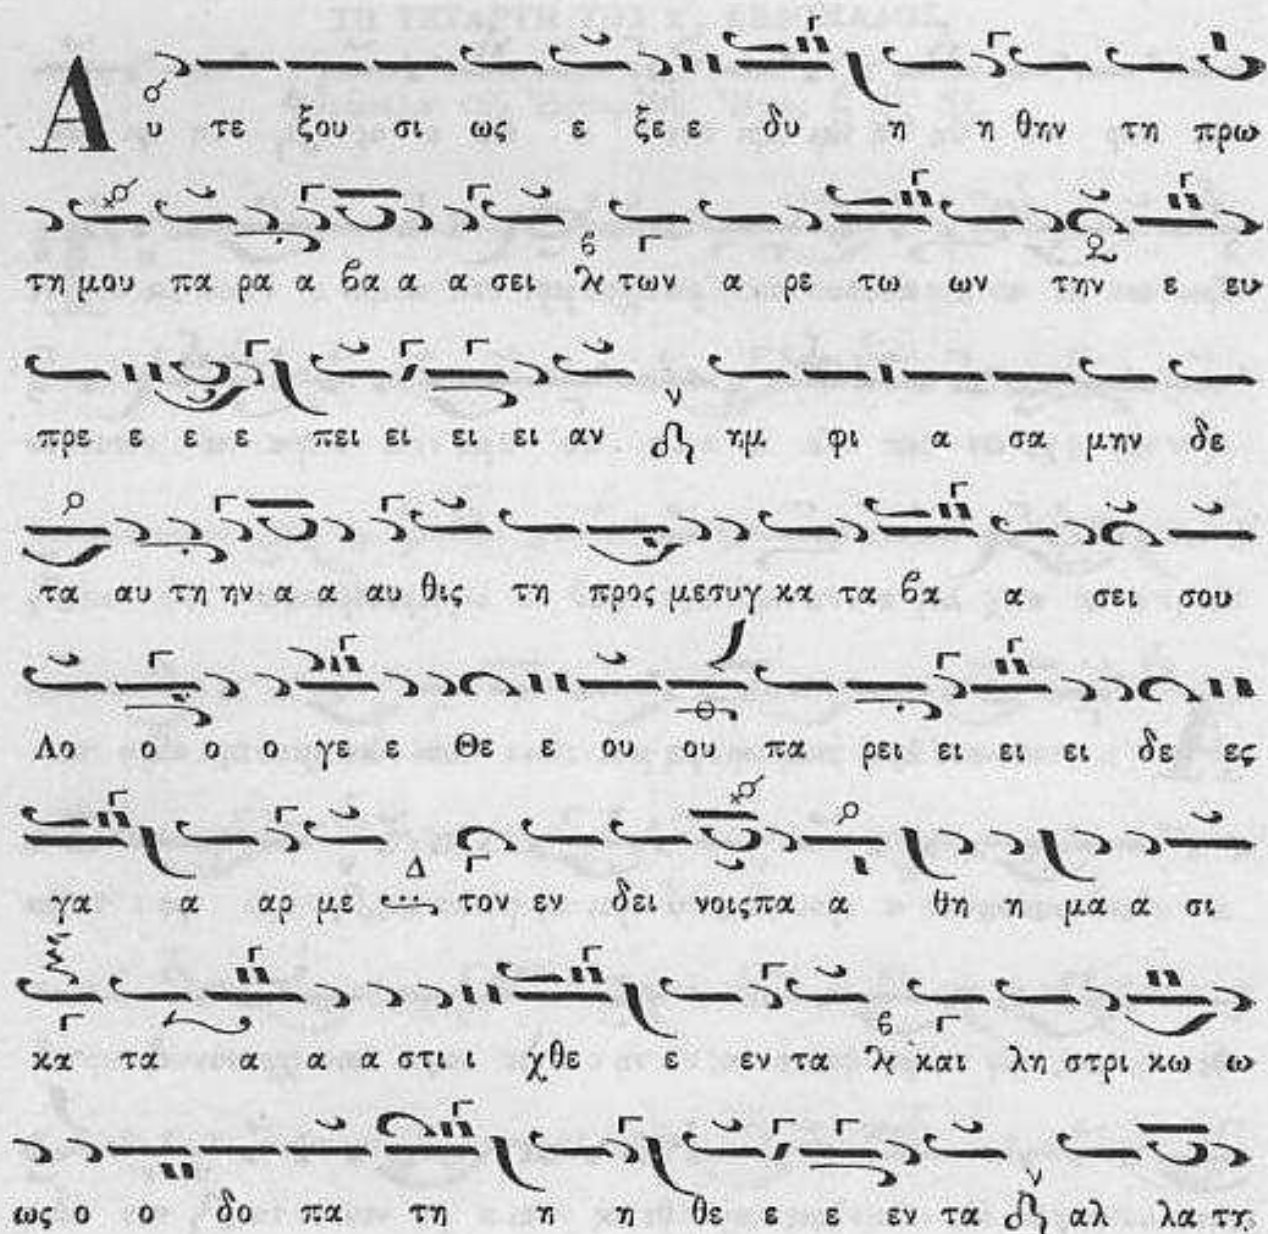 Α υ τε ξου σι ως ε ξε ε δυ η η θην τη πρω
τη μου πα ρα α βα α α σει των α ρε τω ων την ε ευ
πρε ε ε ε πει ει ει ει αν ημ φι α σα μην δε
τα αυ τη ην α α αυ θις τη προς με συγ κα τα βα α σει σου
Λο ο ο ο γε ε Θε ε ου ου πα ρει ει ει ει δε ες
γα α αρ με Δ τον εν δει νοις πα α θη η μα α σι
κα τα α α α στι ι χθε ε εν τα και λη στρι κω ω
ως ο ο δο πα τη η η θε ε ε εν τα αλ λα τη